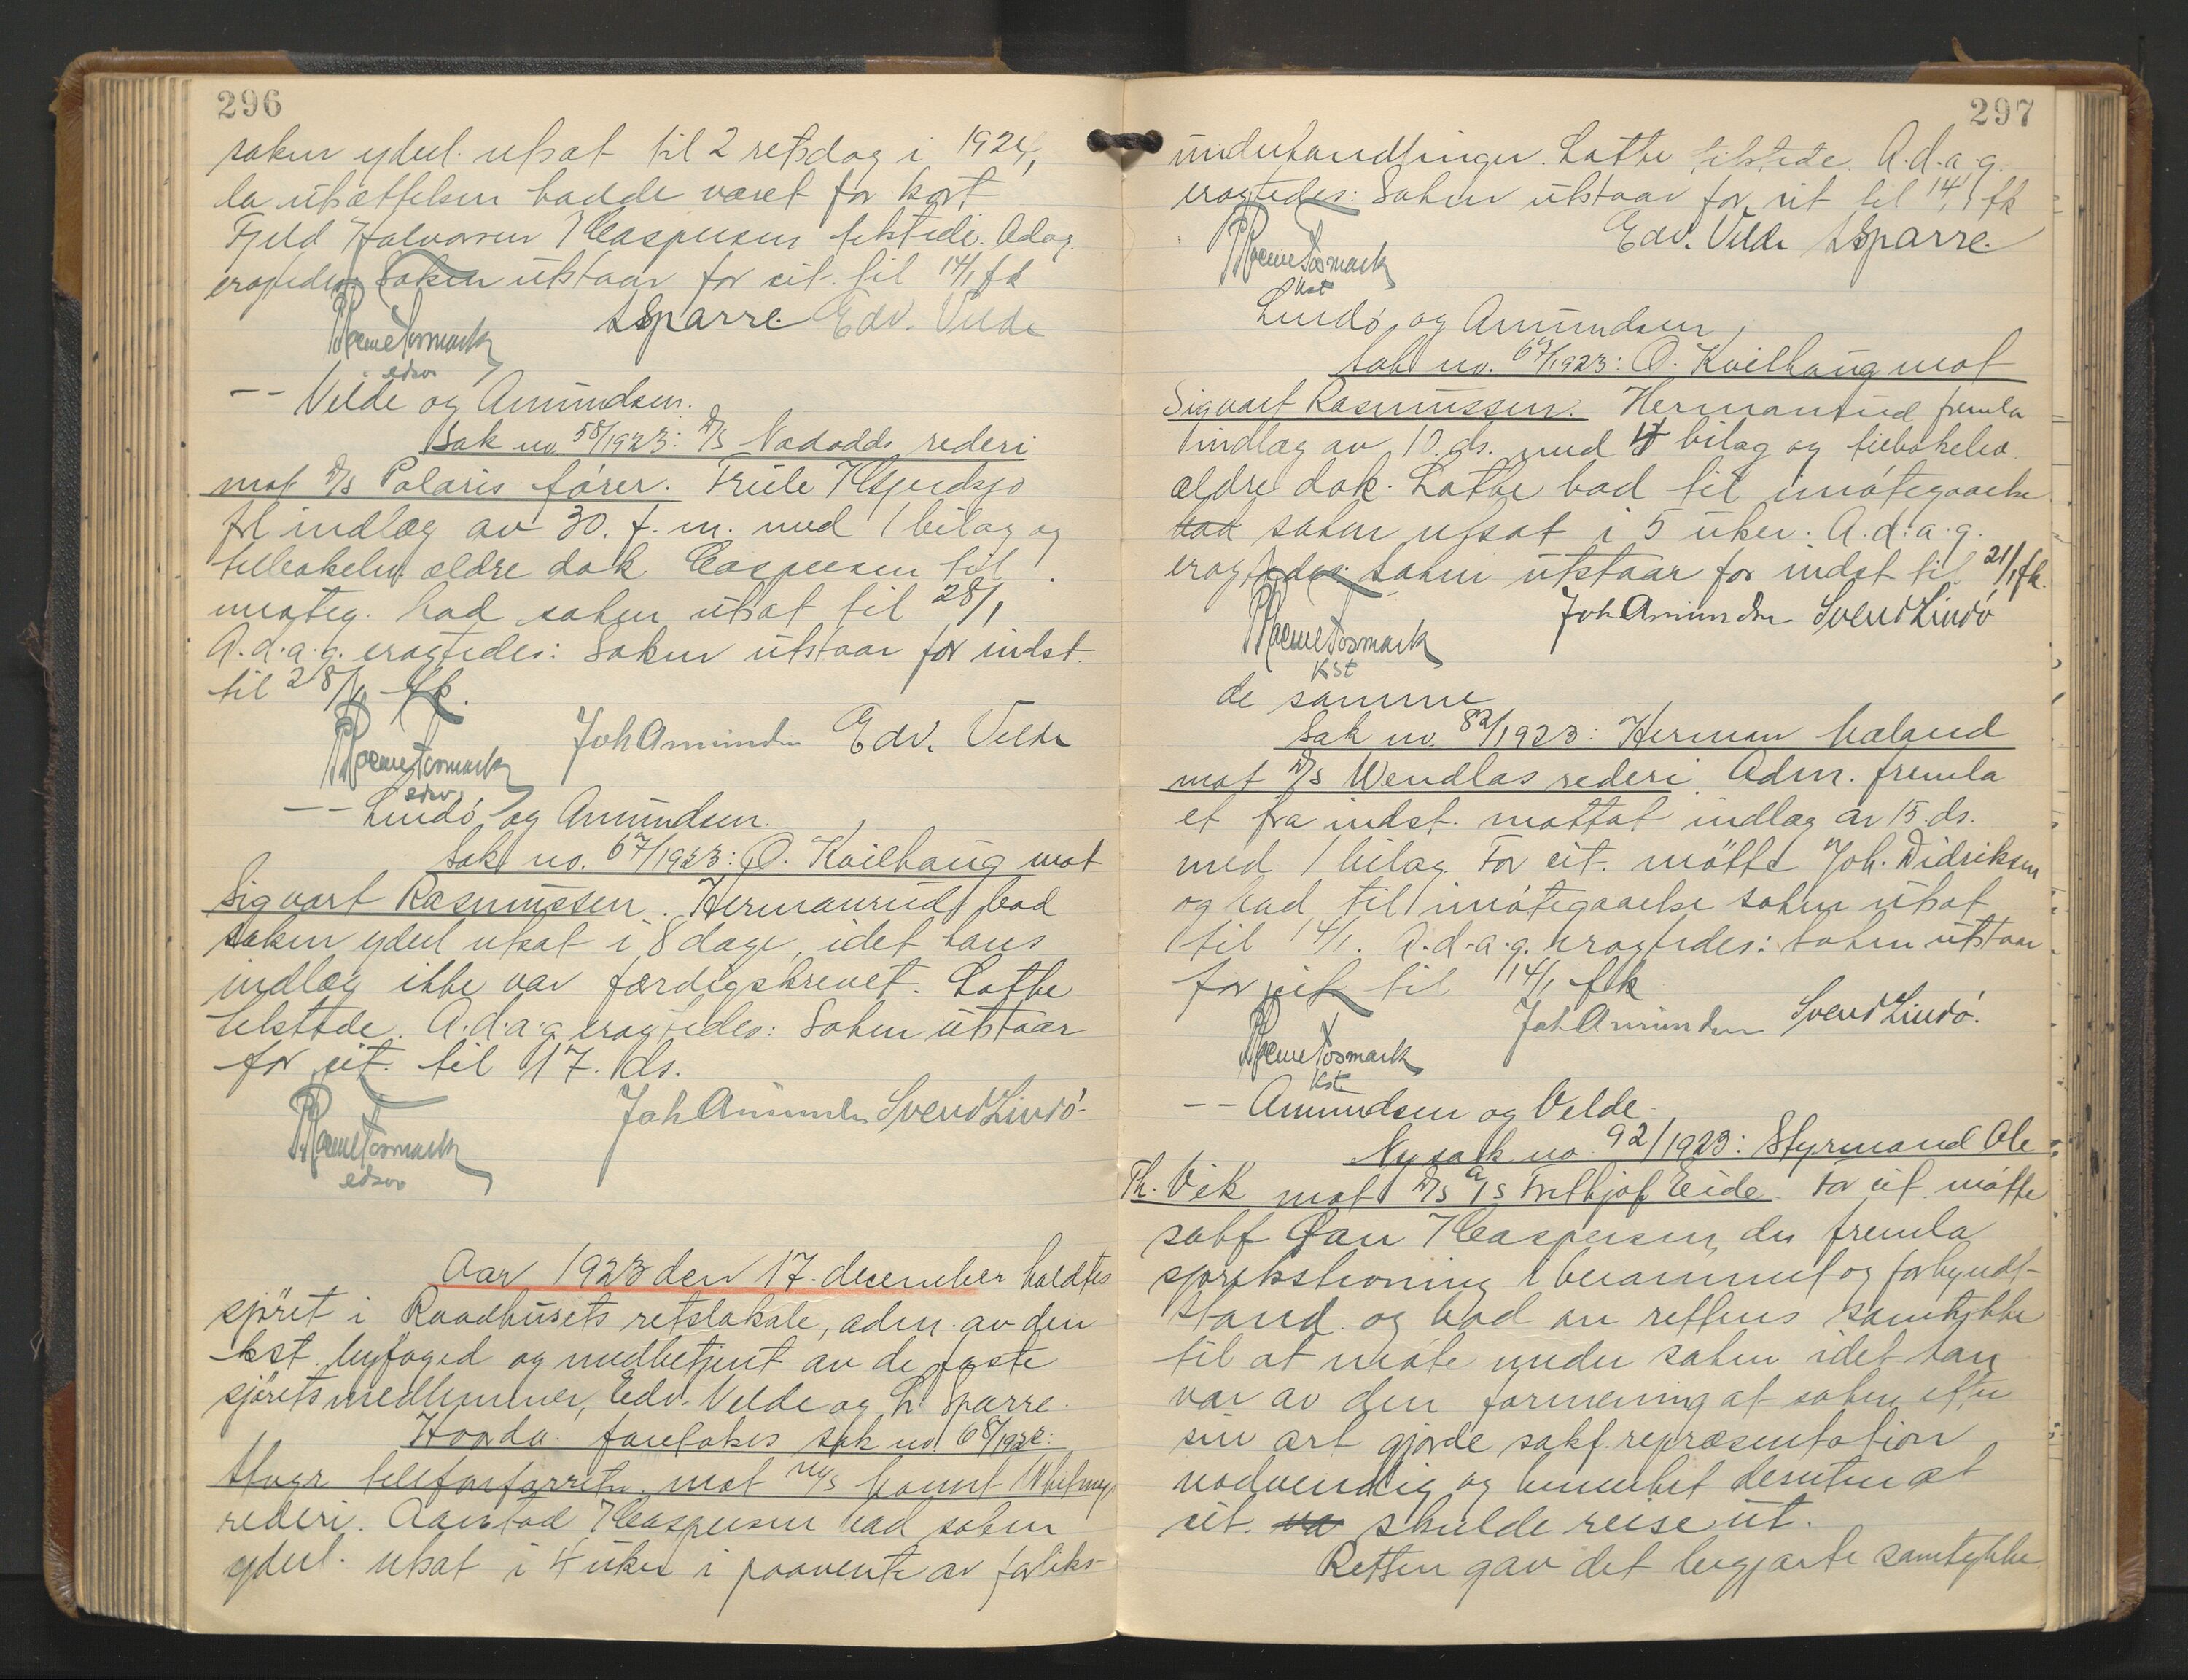 296
saken yderl. utsat til 2 retsdag i 1924,
da utsættelsen hadde været for kort
Fjeld Halvorsen / Caspersen tilstede. Adag.
eragtedes: Saken utstaar for cit. til 14/1 fk
LSparre. Edv. Velde
edsv
-- Velde og Amundsen.
Sak no 58/1923: D/S Nadodds rederi
mot D/S Polaris fører.
frl indlæg av 30. f. m. med 1 bilag og
tilbakelev. ældre dok. Caspersen til
imøteg. bad saken utsat til 28/1
A.d.a.g. eragtedes: Saken utstaar for indst.
til 28/1 fk.
Joh Amundsen Edv. Velde
edsv
-- Lindø og Amundsen.
Sak no. 67/1923: O. Kvilhaug mot
Sigvart Rasmussen. Hermanrud bad
saken yderl utsat i 8 dage, idet hans
indlæg ikke var færdigskrevet. Lothe
tilstede. A.d.a.g. eragtedes: Saken utstaar
for cit. til 17. ds.
Joh Amundsen Svend Lindø
edsv
Aar 1923 den 17. december holdtes
sjøret i Raadhusets retslokale, adm. av den
kst. byfoged og medbetjent av de faste
sjøretsmedlemmer, Edv. Velde og L. Sparre.
Hvorda. foretokes sak no. 68/1922:
mot
rederi. Aarstad / Caspersen bad saken
yderl. utsat i 4 uker i paavente av forliks-
297
underhandlinger. Lothe tilstede. A.d.a.g.
eragtedes: Saken utstaar for cit til 14/1 fk
Edv. Velde LSparre.
kst
Lindø og Amundsen
Sak no. 67/1923: O. Kvilhaug mot
Sigvart Rasmussen. Hermanrud fremla
indlæg av 10. ds. med 4 bilag og tilbakelev.
ældre dok. Lothe bad til imøtegaaelse
bad saken utsat i 5 uker. A.d.a.g.
eragtedes: Saken utstaar for indst til 21/1 fk.
Joh Amundsen Svend Lindø
Kst
de samme
Sak no. 82/1923: Herman Maland
mot D/S Wendlas rederi. Adm. fremla
et fra indst. mottat indlæg av 15. ds.
med 1 bilag. For cit. møtte Joh. Didriksen
og bad til imøtegaaelse saken utsat
til 14/1. A.d.a.g. eragtedes: Saken utstaar
for cit til 14/1 fk
Joh Amundsen Svend Lindø.
Kst
-- Amundsen og Velde.
Ny sak no 92/1923: Styrmand Ole
Th. Vik mot D/S A/S Fridtjof Eide. For cit. møtte
sakf Gan / Caspersen, der fremla
i berammet og forkyndt
stand og bad om rettens samtykke
til at møte under saken idet han
var av den formening at saken efter
sin art gjorde sakf. repræsentation
nødvendig og bemerket desuten at
cit. va skulde reise ut.
Retten gav det begjærte samtykke